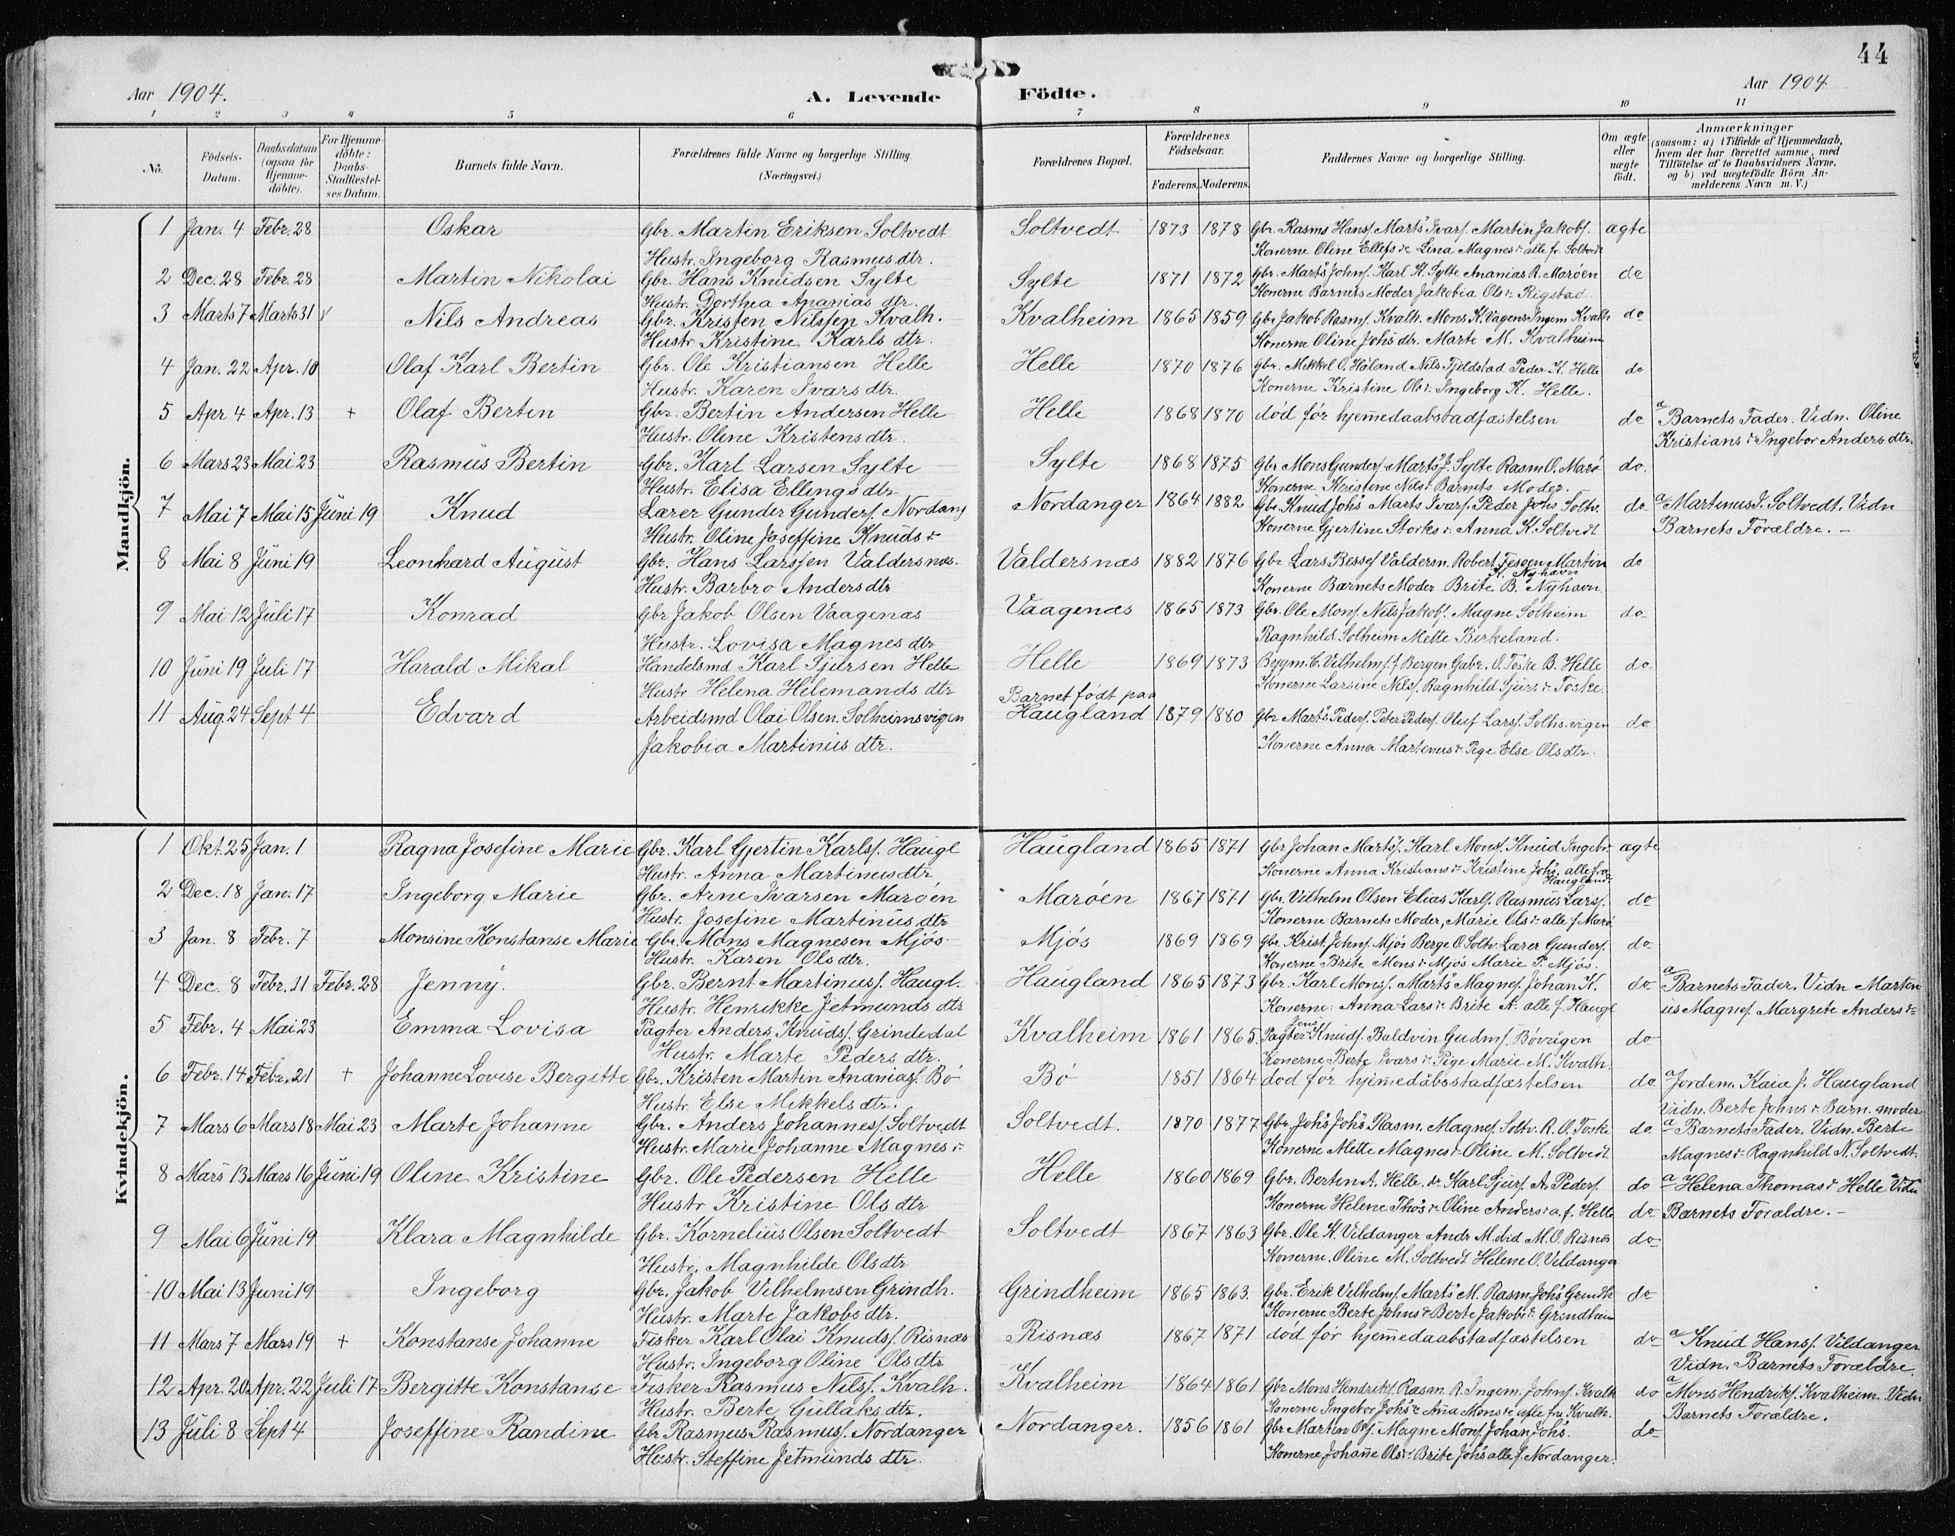 44
Aar 1904.
A. Levende Födte.
Aar 1904
1 2 3 4 5 6 7 8 9 10 11
No. Födsels-Datum. Daabsdatum (ogsaa för Hjemmedöbte). For Hjemmedöbte: Daabs-Stadfæstelses Datum. Barnets fulde Navn. Forældrenes fulde Navne og borgerlige Stilling. (Næringsvei.) Forældrenes Bopæl. Forældrenes Födselsaar. Faderens. Moderens. Faddernes Navne og borgerlige Stilling. Om ægte eller uægte födt. Anmærkninger (saasom: a) i Tilfælde af Hjemmedaab, hvem der har forrettet samme, med Tilföielse af to Daabsvidners Navne, og b) ved uegtefödte Börn Anmelderens Navn m. V.)
Mandkjön.
1 Jan. 4 Febr. 28 Oskar Gbr. Martin Eriksen Soltvedt Soltvedt 1873 1878 Gbr. Rasms Hans. Marts Ivars. Martin Jakobs. ægte
Hustr. Ingeborg Rasmus dtr. Konerne Oline Ellefs dr Lina Magnes dr alle f. Soltvdt
2 Dec. 28 Febr. 28 Martin Nikolai Gbr. Hans Knudsen Sylte Sylte 1871 1872 Gbr. Marts Johns. Karl K. Sylte Ananias R. Marøen do
Hustr. Dorthea Ananias dtr. Konerne Barnets Moder Jakobia Ols dr Rigstad
3 Marts 7 Marts 31 v Nils Andreas Gbr. Kristen Nilssen Kvalh. Kvalheim 1865 1859 Gbr Jakob Rasms. Kvalh. Mons K. Vagenes Ingem. Kvalh do
Hustr. Kristine Karls dtr. Konerne Oline Johs dtr. Marte M. Kvalheim
4 Jan. 22 Apr. 10 Olaf Karl Bertin Gbr. Ole Kristiansen Helle Helle 1870 1876 Gbr. Mikkel O. Høland Nils Fjeldstad Peder K. Helle do
Hustr. Karen Ivars dtr. Konerne Kristine Ols dr. Ingeborg K. Helle.
5 Apr 4 Apr. 13 + Olaf Bertin Gbr. Bertin Andersen Helle Helle 1868 1870 død før hjemmedaabstadfæstelsen do a Barnets Fader. Vidn. Oline
Hustr. Oline Kristens dtr. Kristians dr Ingebor Anders dtr.
6 Mars 23 Mai 23 Rasmus Bertin Gbr. Karl Larsen Sylte Sylte 1868 1875 Gbr Mons Gunders. Marts J. Sylte Rasm O. Marø do.
Hustr. Elisa Ellings dtr Konerne Kristine Nils dr Barnets Moder.
7 Mai 7 Mai 15 Juni 19 Knud Lærer Gunder Gunders. Nordang Nordanger 1864 1882 Gbr Knud Johs Marts Ivars. Peder Johs Soltv. do a Martinus J. Soltvedt. Vidn
Hustr. Oline Joseffine Knuds dr Konerne Gjertine Storks dr Anna K. Soltvedt Barnets Forældre. -
8 Mai 8 Juni 19 Leonhard August Gbr. Hans Larssen Valdersnæs. Valdersnæs 1882 1876 Gbr Lars Besses. Valdersn. Robert Martin do
A. Nyhavn
Hustr. Barbro Anders dtr Konerne Barnets Moder Brite B. Nyhavn
9 Mai 12 Juli 17 Konrad Gbr Jakob Olsen Vaagenæs Vaagenæs 1865 1873 Gbr. Ole Mons. Nils Jakobs. Magne Solheim do
Hustr. Lovisa Magnes dtr Ragnhild Solheim Mette Birkeland.
10 Juni 19 Juli 17 Harald Mikal Handelsmd Karl Sjursen Helle Helle 1869 1873 Bygm. C. Vilhelms. f Bergen Gabr. O. Toske B. Helle do
Hustr Helena Hilemands dtr Konerne Larsine Nils. Ragnhild Sjurs dr Toske.
Barnet født paa
11 Aug 24 Sept 4 Edvard Arbeidsmd Olai Olsen. Solheimsvigen Haugland 1879 1880 Gbr Marts Peders. Peter Peders. Oluf Lars. Solhs.vigen do
Jakobia Martinus dtr. Konerne Anna Martinus dr Pige Else Ols dtr.
Kvindekjön.
1 Okt. 25 Jan. 1 Ragna Josefine Marie Gbr. Karl Gjertin Karls. Haugl Haugland 1865 1871 Gbr Johan Marts. Karl Mons. Knud Ingebr. ægte
Hustr. Anna Martinus dtr Konerne Anna Kristians dr Kristine Johs. alle fra Haugland
2 Dec. 18 Jan. 17 Ingeborg Marie Gbr. Arne Ivarsen Marøen Marøen 1867 1871 Gbr. Vilhelm Olsen Elias Karls. Rasmus Lars. do
Hustr. Josefine Martinus dtr Konerne Barnets Moder, Marie Ols dr alle f. Marø
3 Jan. 8 Febr. 7 Monsine Konstanse Marie Gbr. Mons Magnesen Mjøs Mjøs 1869 1869 Gbr. Krist. Johns. Mjøs Berge O. Soltv. Lærer Gunders. do
Hustr. Karen Ols dtr. Konerne Brite Mons dr Mjøs Marie P. Mjøs.
4 Dec. 8 Febr. 11 Febr. 28 Jenny. Gbr. Bernt Martinus. Haugl. Haugland 1865 1873 Gbr. Karl Mons. Marts Magnes. Johan K. do a Barnets Fader. Vidn Martin
Hustr. Henrikke Jetmunds dtr Konerne. Anna Lars dr Brite A. alle f. Haugl us Magnes. Margrete Anders dr
5 Febr. 4 Mai 23 Emma Lovisa Pagter Anders Knuds. Grindedal Kvalheim 1861 1865 Pagter Jens Knuds. Baldvin Gudms. Bøvågen do
Hustr. Marte Peders dtr. Konerne Berte Ivars dr Pige Marie M. Kvalh.
6 Febr. 14 Febr. 21 + Johanne Lovise Bergitte Gbr. Kristen Martin Ananias. Bø Bø 1851 1864 død før hjemedåbsstadfæstelsen do a Jordem. Kaia J. Haugland
Hustr. Else Mikkels dtr. Vidn. Berte Johns dr Barn. moder
7 Mars 6 Mars 18 Mai 23 Marte Johanne Gbr. Anders Johannes. Soltvedt Soltvedt. 1870 1877 Gbr. Johs Johs Rasm. Magnes. Soltv. R. O. Toske do a Barnets Fader. Vidn. Berte
Hustr. Marie Johanne Magnes dr Konerne Mette Magnes dr Oline M. Soltvedt Magnes dr Ragnhild N. Soltvedt.
8 Mars 13 Mars 16 Juni 19 Oline Kristine Gbr. Ole Pedersen Helle Helle 1860 1869 Gbr. Bertin A. Helle. dr Karl Sjurs. A. Peders. do a Helena Thomas dr Helle Vidn
Hustr Kristine Ols dtr Konerne Helene Thos dr Oline Anders dr a. f. Helle do Barnets Forældre. -
9 Mai 6 Juni 19 Klara Magnhilde Gbr. Kornelius Olsen Soltvedt Soltvedt 1867 1863 Gbr. Ole K. Vildanger Andr M. ibid M. O. Risnæs do
Hustr. Magnhilde Ols dtr Konerne. Oline M. Soltvedt Helene O. Vildanger
10 Mai 13 Juni 19 Ingeborg Gbr. Jakob Vilhelmsen Grindh. Grindheim 1865 1863. Gbr. Erik Vilhelms. Marts M. Rasm Johs Grindh do
Hustr. Marte Jakobs dtr. Konerne Berte Johns dr Berte Jakobs dr Grindheim
11 Mars 7 Mars 19 + Konstanse Johanne Fisker Karl Olai Knuds. Risnæs Risnæs 1867 1871 død før hjemedaabstadfæstelsen do a Knud Hans. Vildanger
Hustr. Ingeborg Oline Ols dtr Vidn. Barnets Forældre
12 Apr. 20 Apr. 22 Juli 17 Bergitte Konstanse Fisker Rasmus Nils. Kvalh. Kvalheim 1864 1861 Gbr Mons Hendriks. Rasm. R. Ingem. Johns. Kvalh do a Mons Hendriks. Kvalheim Vidn
Hustr. Berte Gullaks dtr. Konerne Ingebor Johs dr Ana Mons dr alle fra Kvalh. Barnets Forældre.
13 Juli 8 Sept 4 Joseffine Randine Gbr Rasmus Rasmus. Nordanger Nordanger. 1856 1861 Gbr Martin Ols. Magne Mons. Johan Johs. do
Hustr. Steffine Jetmunds dtr. Konerne Johane Ols dr Brite Johs alle f. Nordanger.